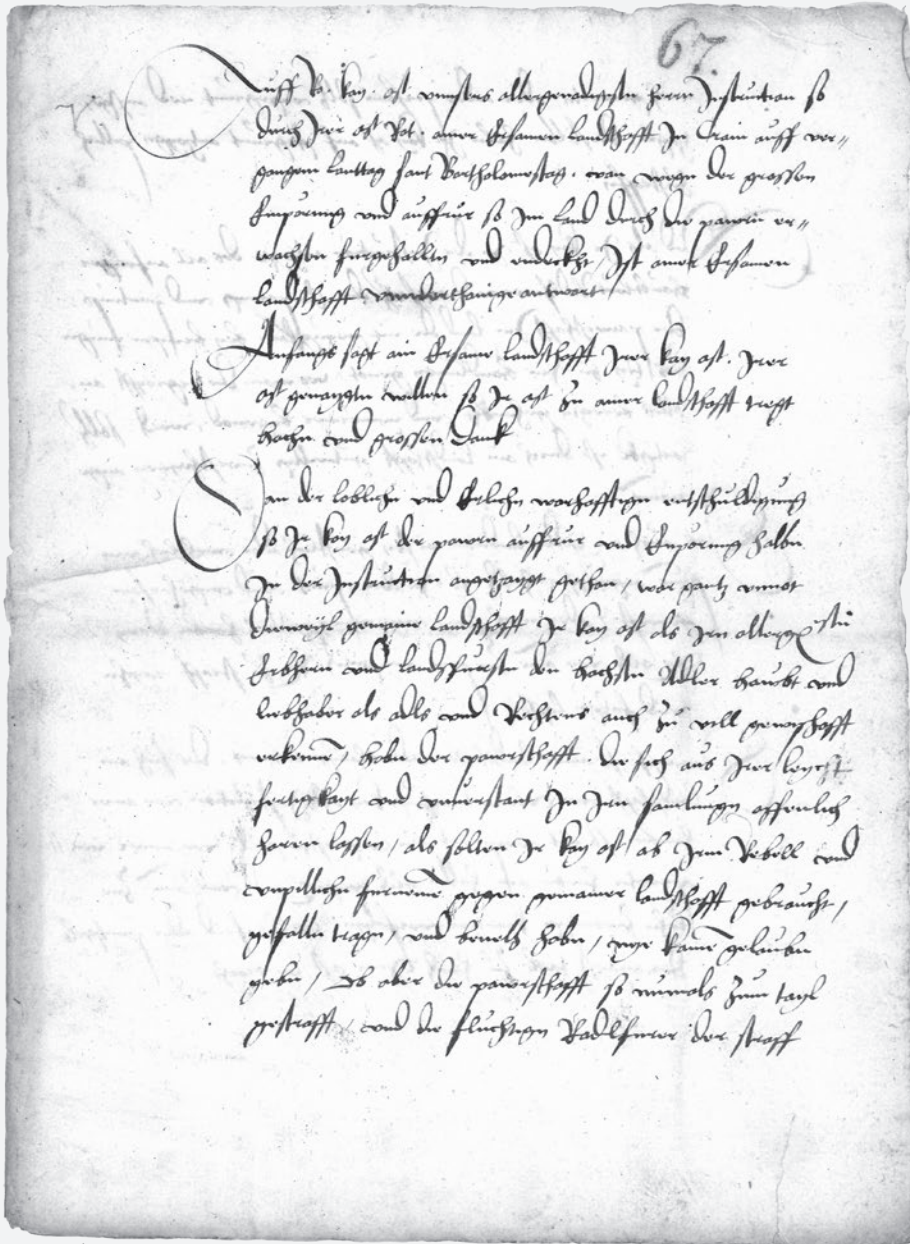 67.
Auff Ro. kay. Mt. unnsers allergenedigisten herrn Instruction so
durch Irer Mt Ret. ainer Ersamen landschafft In Crain auff ver-
gangem lanttag sant Bartholomestag. von wegn der grossen
Emporung und auffrur so Im land durch die pawrn er-
wachsen furgehallten und endeckht, Ist ainer Ersamen
landschafft unnderthanige antwort /
Anfangs sagt ain Ersame landschafft Irer kay Mt. Irer
Mt genaygten willen so Ir Mt zu ainer landschafft tregt
hochn und grossen dank
Der loblichn und Erlichn warhafftign entschuldigung
so Ir kay Mt der pawrn auffrur und Emporung halbn
In der Instruction angetzaygt gethan / war gantz unnot
dieweyl gemaine landschafft Ir kay Mt als Irn allergdstn
Erbhern und landsfursten den hochsten Adler haubt und
liebhaber als adls und Rechtens auch zu vill gewishafft
erkennen / habn der pawrschafft. die sich aus Irer leycht
fertigkayt und unuerstant In Irn samlungn offenlich
horen lassen / als solten Ir kay Mt ab Irm Rebell und
unpillichn furnemen gegen gemainer landschafft gebraucht /
gefalln tragn / und beuelh habn / nye kainen gelaubn
gebn / Ob aber die pawrschafft so numals zum tayl
gestrafft / und die fluchtign Radlfurer der straff